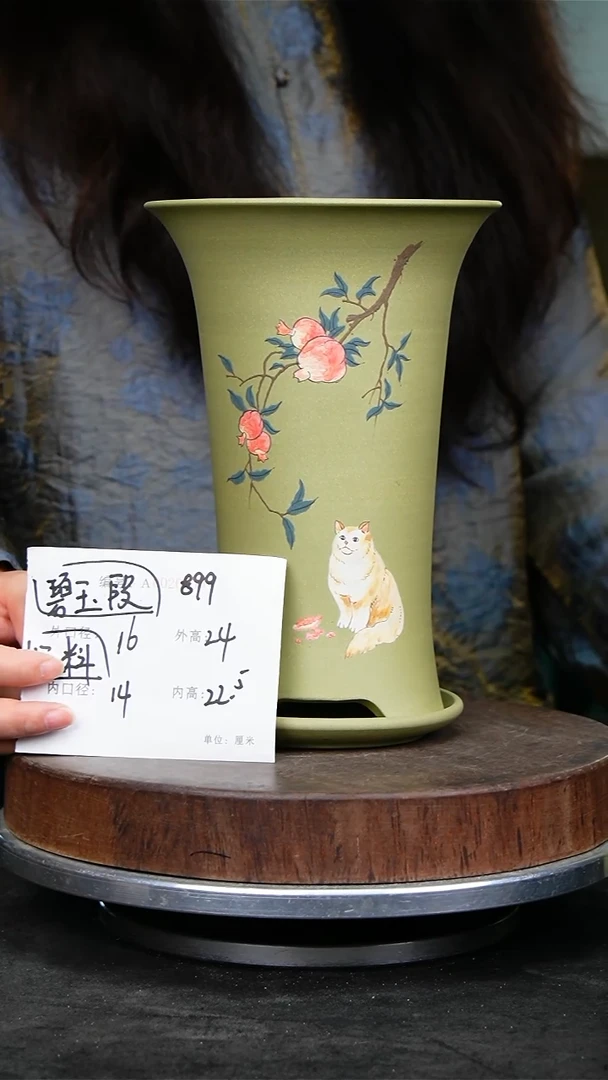 碧玉段 899
外口径: 16 外高: 24
料
内口径: 14 内高: 22.5
单位: 厘米